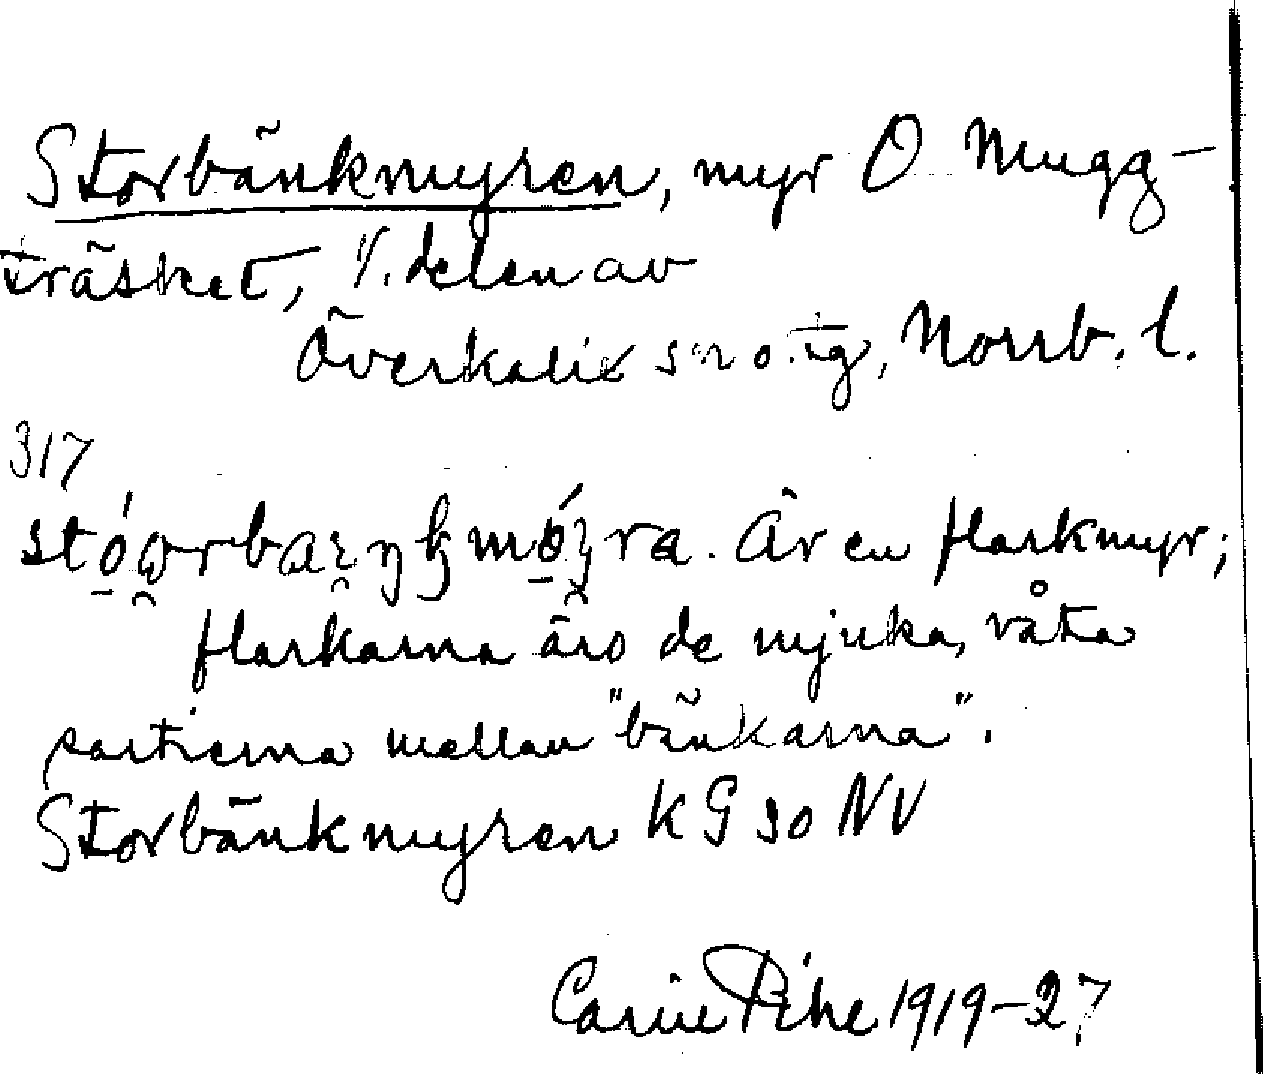 Storbänkmyren, myr O Mugg-
träsket, V. delen av
Överkalix sn o. tg, Norrb. l.
317
Är en flarkmyr;
flarkarna äro de mjuka, våta
partierna mellan "bänkarna".
Storbänkmyren KG 30 NV
Carin Pihl 1919-27